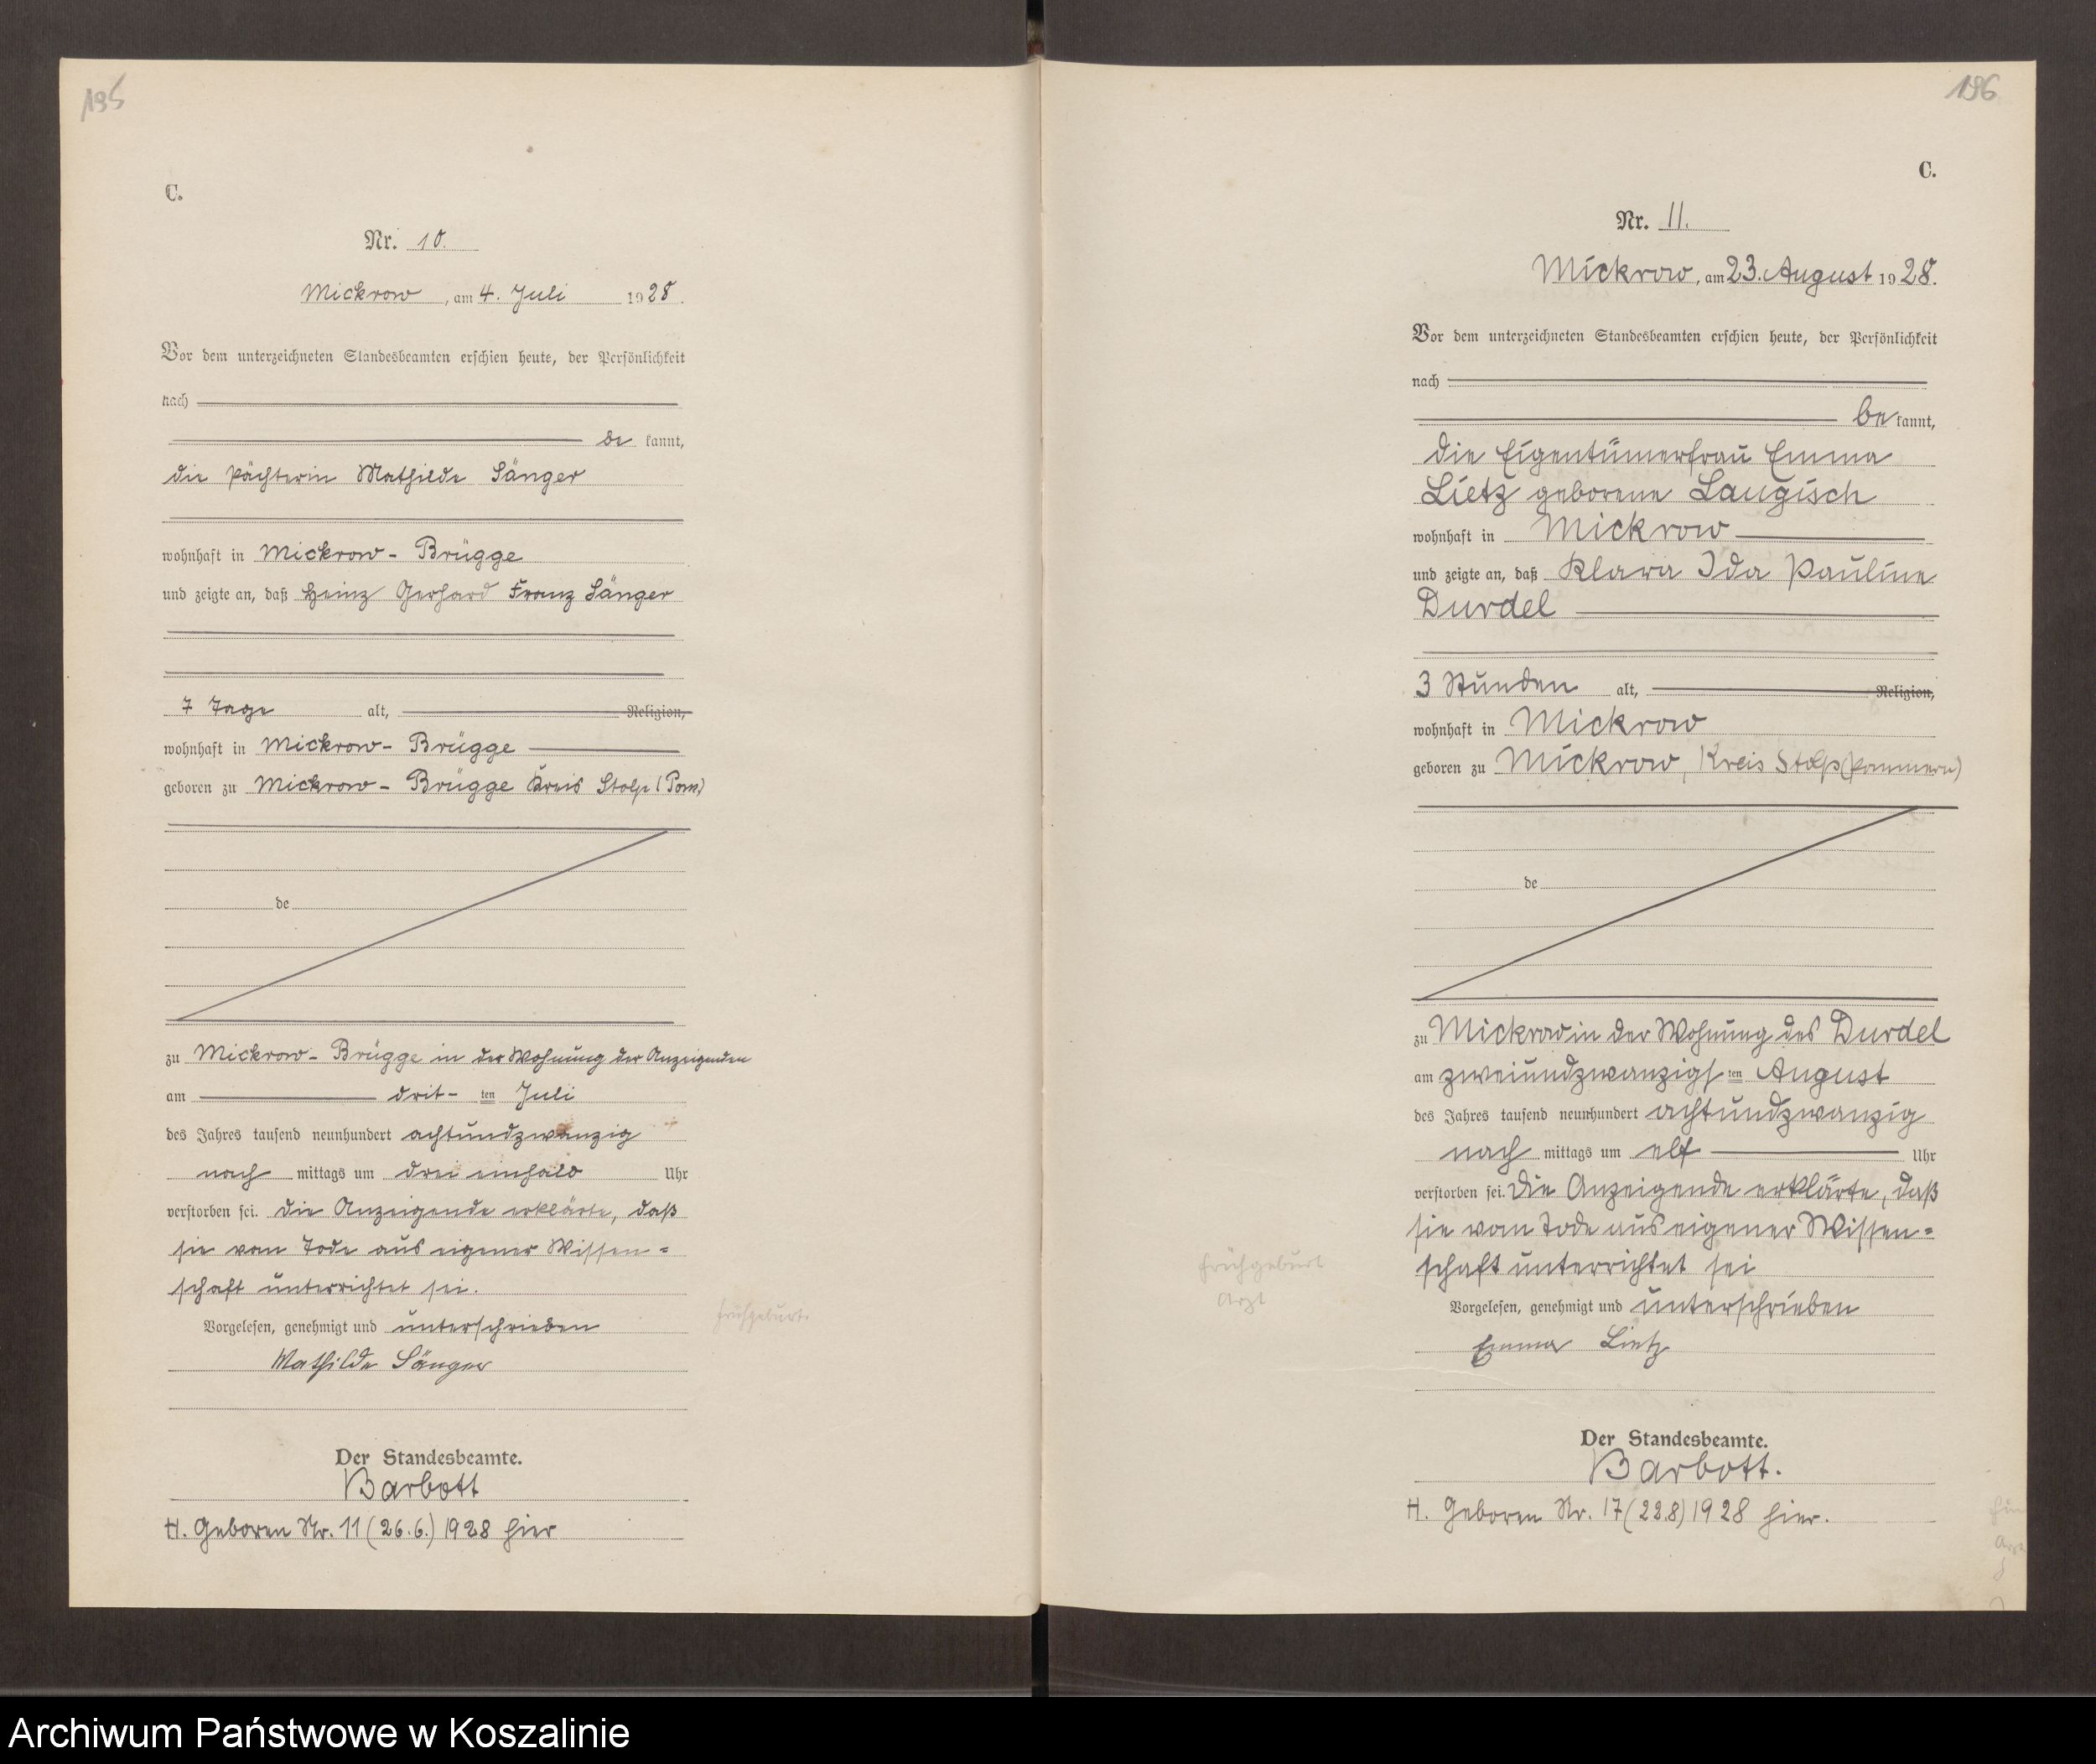 195
C.
Nr. 10.
Mickrow, am 4. Juli 1928.
Vor dem unterzeichneten Standesbeamten erschien heute, der Persönlichkeit
nach
be kannt,
die Pächterin Mathilde Sänger
wohnhaft in Mickrow - Brügge
und zeigte an, daß Heinz Gerhard Franz Sänger
7 Tage alt, Religion,
wohnhaft in Mickrow - Brügge
geboren zu Mickrow - Brügge Kreis Stolp (Pom.)
de
zu Mickrow - Brügge in der Wohnung der Anzeigenden
am drit- ten Juli
des Jahres tausend neunhundert achtundzwanzig
nach mittags um drei einhalb Uhr
verstorben sei. die Anzeigende erklärte, daß
sie vom Tode aus eigener Wissen =
schaft unterrichtet sei.
Frühgeburt.
Vorgelesen, genehmigt und unterschrieben
Mathilde Sänger
Der Standesbeamte.
Barbott
H. Geboren Nr. 11 (26.6.) 1928 hier
196
C.
Nr. 11.
Mickrow, am 23. August 1928.
Vor dem unterzeichneten Standesbeamten erschien heute, der Persönlichkeit
nach
be kannt,
die Eigentümerfrau Emma
Lietz geborene Laugisch
wohnhaft in Mickrow
und zeigte an, daß Klara Ida Pauline
Durdel
3 Stunden alt, Religion,
wohnhaft in Mickrow
geboren zu Mickrow, Kreis Stolp (Pommern)
de
zu Mickrow in der Wohnung des Durdel
am zweiundzwanzigs ten August
des Jahres tausend neunhundert achtundzwanzig
nach mittags um elf Uhr
verstorben sei. Die Anzeigende erklärte, daß
sie vom Tode aus eigener Wissen =
schaft unterrichtet sei
Frühgeburt
Arzt
Vorgelesen, genehmigt und unterschrieben
Emma Lietz
Der Standesbeamte.
Barbott.
H. Geboren Nr. 17 (22.8) 1928 hier.
Archiwum Państwowe w Koszalinie